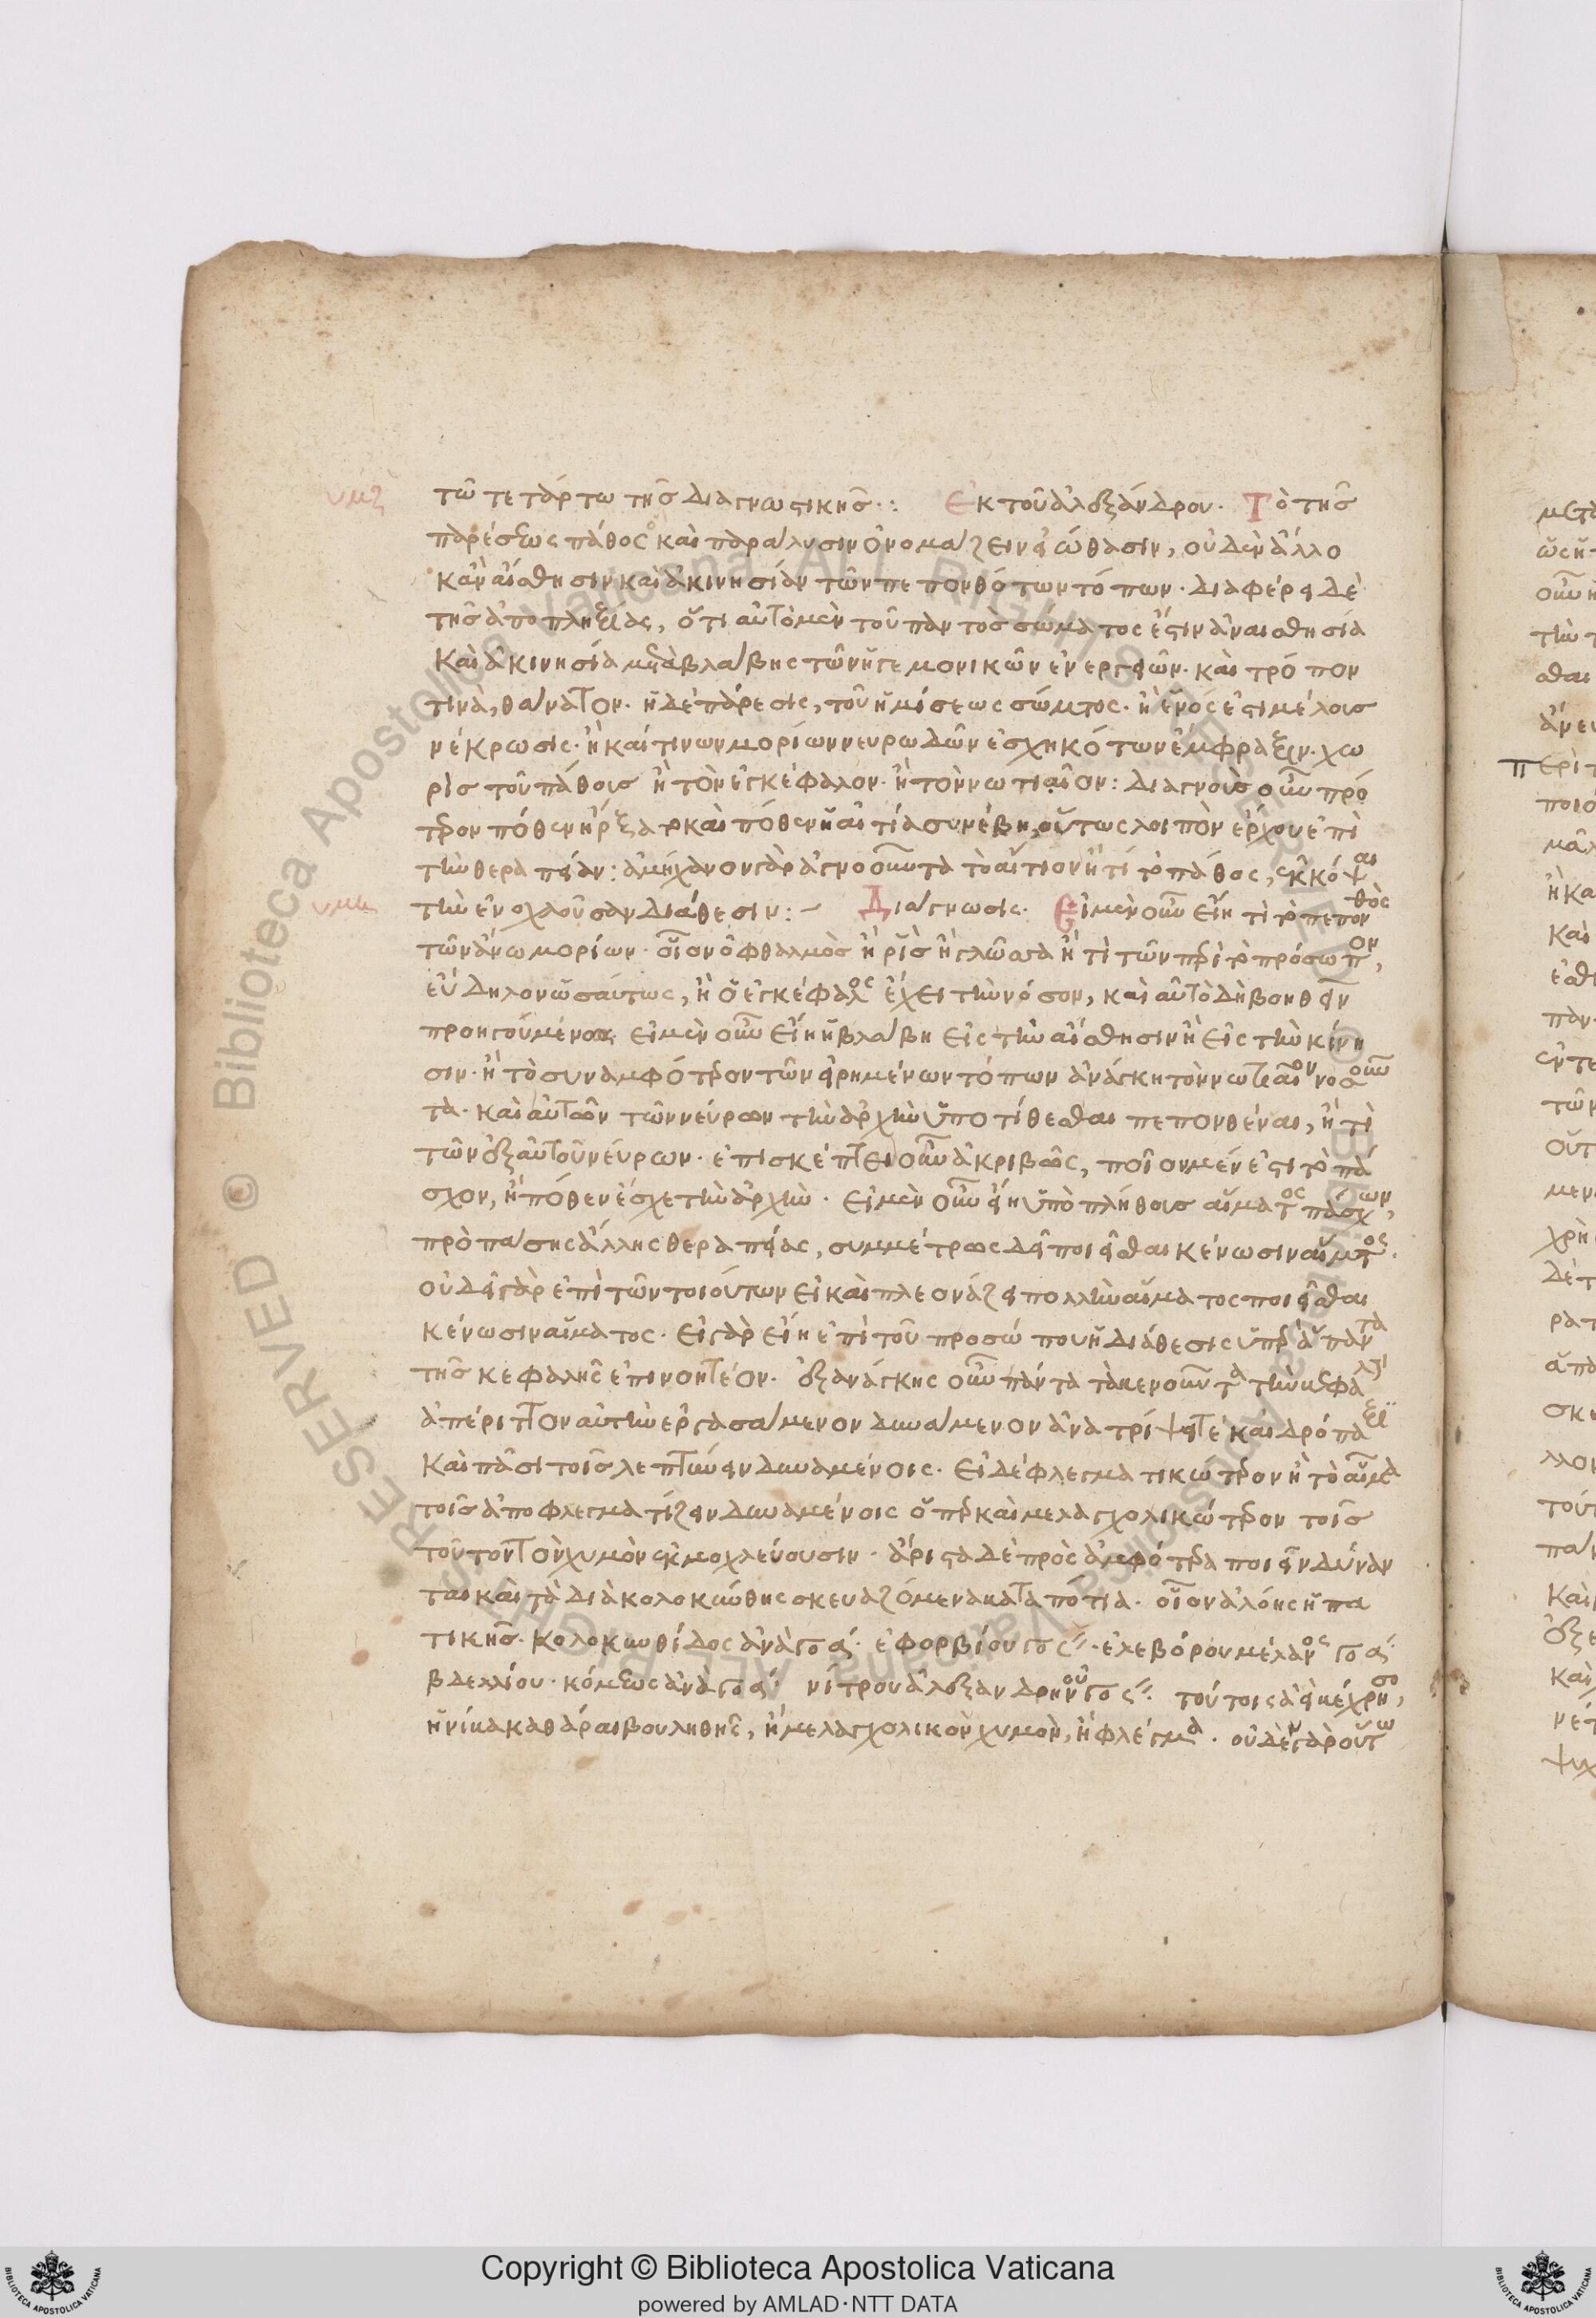 υμζ τῶ τετάρτω τῆς διαγνωστικῆς·: Ἐκ τοῦ ἀλεξάνδρου· Τὸ τῆς
παρέσεως πάθος ὃ καὶ παράλυσιν ὀνομάζειν εἰώθασιν, οὐδὲν ἄλλο
καὶ ἀκινησίαν τῶν πεπονθότων τόπων· διαφέρει δὲ
τῆς ἀποπληξίας, ὅτι αὐτὸ μὲν τοῦ παντὸς σώματος ἐστιν ἀναισθησία
καὶ ἀκινησία μετὰ βλάβης τῶν ἡγεμονικῶν ἐνεργειῶν· καὶ τρόπον
τινὰ, θάνατον· ἡ δὲ πάρεσις, τοῦ ἡμίσεως σώματος· ἢ ἑνός ἐστι μέλους
νέκρωσις· ἢ καί τινων μορίων νευρωδῶν ἐσχηκότων ἔμφραξιν· χω
ρὶς τοῦ πάθους ἢ τὸν ἐγκέφαλον· ἢ τὸν νωτιαῖον: διαγνοὺς οὖν πρό
τερον πόθεν ἤρξατο καὶ πόθεν ἡ αἰτία συνέβη, οὕτως λοιπὸν ἔρχου ἐπὶ
τὴν θεραπείαν: ἀμήχανον γὰρ ἀγνοοῦντα τὸ αἴτιον ἢ τί τὸ πάθος, ἐκκόψαι
υμη τὴν ἐνοχλοῦσαν διάθεσιν:– Διάγνωσις· Εἰ μὲν οὖν εἴη τὶ τὸ πεπονθὸς
τῶν ἄνω μορίων· οἷον ὀφθαλμὸς ἢ ῥὶς ἢ γλῶσσα ἢ τὶ τῶν περὶ τὸ πρόσωπον,
εὔδηλον ὡσαύτως, ἢ ὁ ἐγκέφαλος ἔχει τὴν νόσον, καὶ αὐτὸ δὴ βοηθεῖν
προηγούμενος εἰ μὲν οὖν εἴη ἡ βλάβη εἰς τὴν αἴσθησιν ἢ εἰς τὴν κίνη
σιν· ἢ τὸ συναμφότερον τῶν εἰρημένων τόπων ἀνάγκη τὸν νωτιαῖον νοσοῦν
τα· καὶ αὐτῶν τῶν νεύρων τὴν ἀρχὴν ὑποτίθεσθαι πεπονθέναι, ἢ τὶ
τῶν ἐξ αὐτοῦ νεύρων· ἐπισκέπτει οὖν ἀκριβῶς, ποῖον μέν ἐστι τὸ πά
σχον, ἢ πόθεν ἔσχε τὴν ἀρχὴν· εἰ μὲν οὖν εἴη ὑπὸ πλήθους αἵματος πάσχων,
πρὸ πάσης ἄλλης θεραπείας, συμμέτρως δεῖ ποιεῖσθαι κένωσιν αἵματος·
οὐ δεῖ γὰρ ἐπὶ τῶν τοιούτων εἰ καὶ πλεονάζει πολλὴν αἵματος ποιεῖσθαι
κένωσιν αἵματος· εἰ γὰρ εἴη ἐπὶ τοῦ προσώπου ἡ διάθεσις ὑπὲρ ἅπαντα
τῆς κεφαλῆς ἐπινοητέον· ἐξανάγκης οὖν πάντα τὰ κενοῦντα τὴν κεφαλὴν
ἀπέριττον αὐτὴν ἐργασάμενον δυνάμενον ἀνατρίψει τὲ καὶ δρόπαξι
καὶ πᾶσι τοῖς λεπτύνειν δυναμένοις· εἰ δὲ φλεγματικώτερον ἢ τὸ αἷμα
τοῖς ἀποφλεγματίζειν δυναμένοις ὅπερ καὶ μελαγχολικώτερον τοῖς
τοῦτον τὸν χυμὸν ἐκμοχλεύουσιν· ἄριστα δὲ πρὸς ἀμφότερα ποιεῖν δύναν
ται καὶ τὰ διὰ κολοκύνθης σκευαζόμενα καταπότια· οἷον ἀλόης ἡπα
τικῆς· κολοκυνθίδος ἀνὰ γο α· εὐφορβίου γο ς· ἐλεβόρου μέλανος γο α
βδελλίου· κόμεως ἀνὰ γο α· νίτρου ἀλεξανδρηνοῦ γο ς· τούτοις ἀεὶ κέχρησο,
ἡνίκα καθάραι βουληθῆς, ἢ μελαγχολικὸν χυμὸν, ἢ φλέγμα· οὐδὲν γὰρ οὕτω
RESERVED © Biblioteca Apostolica Vaticana ALL RIGHTS
Copyright © Biblioteca Apostolica Vaticana
powered by AMLAD·NTT DATA